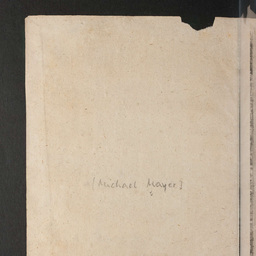 [Michael Mayer]